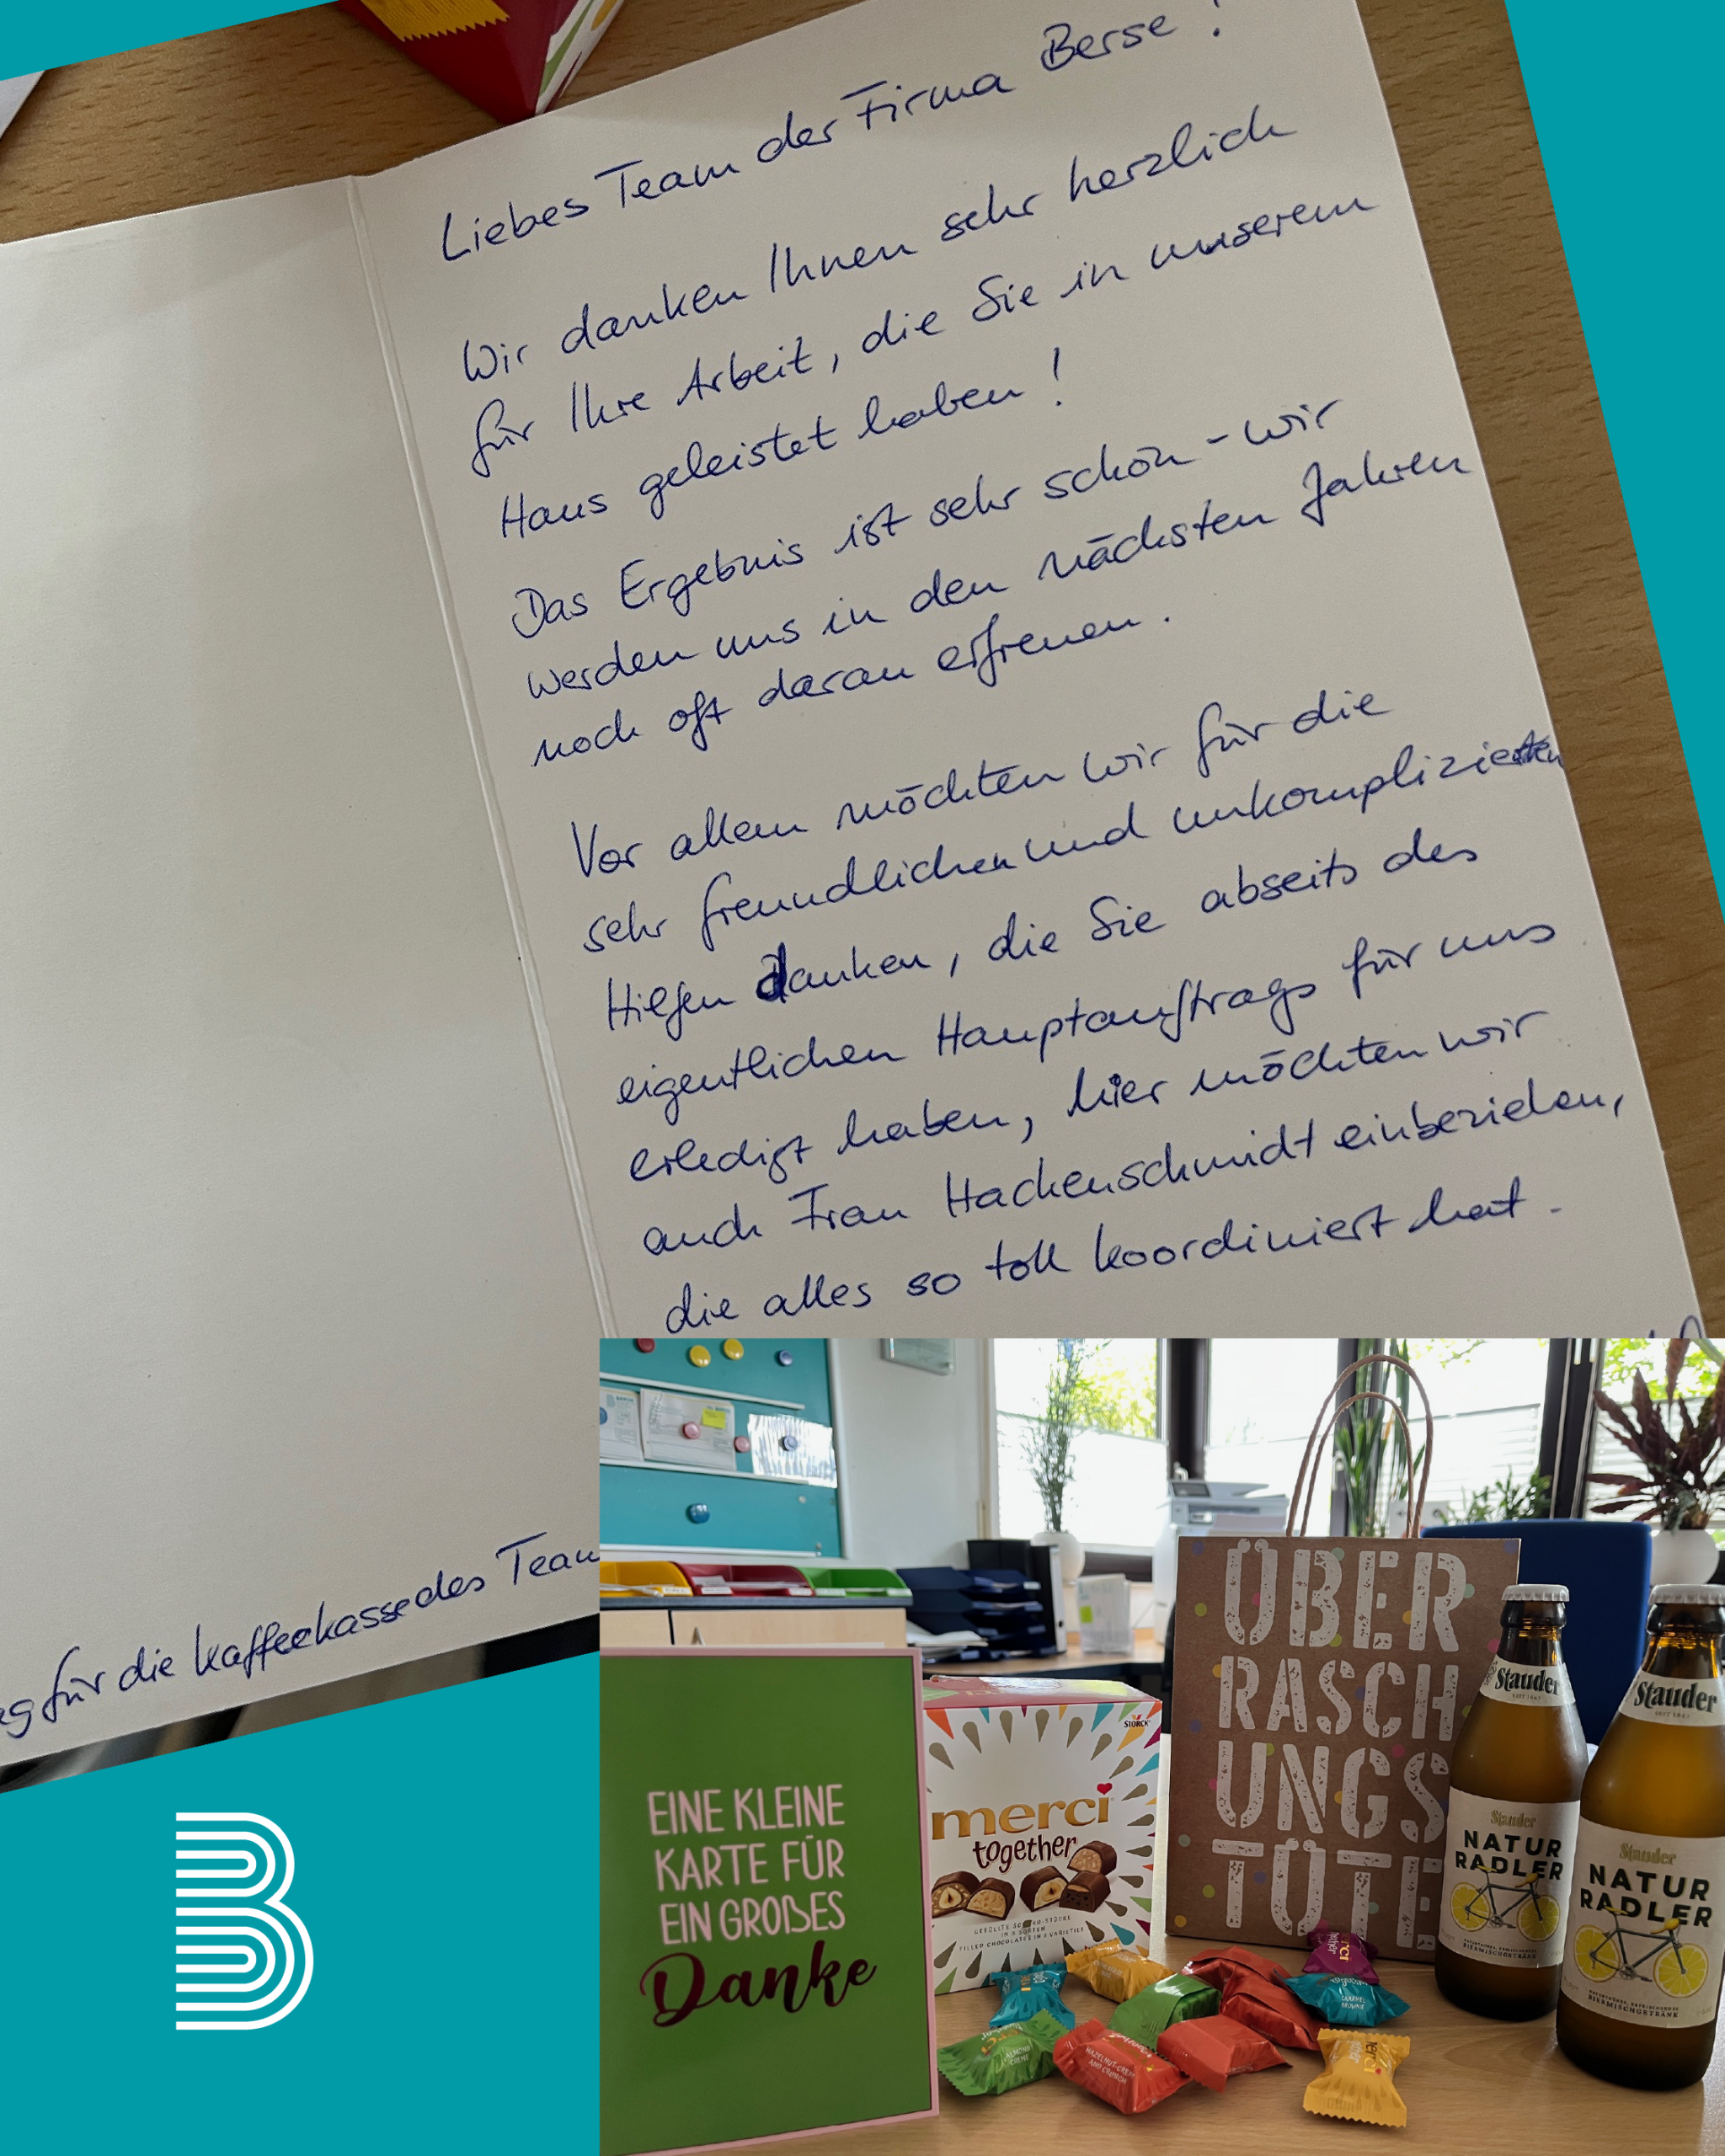 Liebes Team der Firma Berse!
Wir danken Ihnen sehr herzlich
für Ihre Arbeit, die Sie in unserem
Haus geleistet haben!
Das Ergebnis ist sehr schön - wir
werden uns in den nächsten Jahren
noch oft daran erfreuen.
Vor allem möchten wir für die
sehr freundlichen und unkomplizierten
Hilfen danken, die Sie abseits des
eigentlichen Hauptauftrags für uns
erledigt haben, hier möchten wir
auch Frau Hackenschmidt einbeziehen,
die alles so toll koordiniert hat.
für die Kaffeekasse des Team
B
EINE KLEINE
KARTE FÜR
EIN GROẞES
Danke
STORCK
merci
together
GEFÜLLTE SCHOKO-STÜCKE
FILLED CHOCOLATES IN 5 VARIETIES
ÜBER
RASCH
UNGS
TÜTE
Stauder
SEIT 1867
Stauder
NATUR
RADLER
NATURTRÜBES, ERFRISCHENDES
BIERMISCHGETRÄNK
Stauder
SEIT 1867
Stauder
NATUR
RADLER
NATURTRÜBES, ERFRISCHENDES
BIERMISCHGETRÄNK